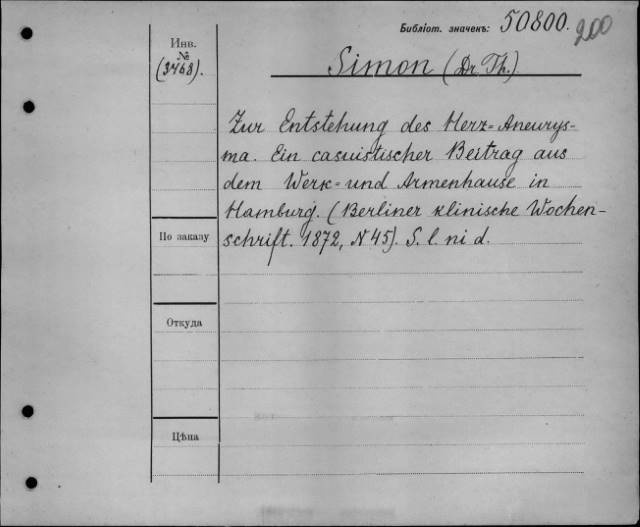 Библіот. значекъ: 50800. 200
Инв.
№
(3468).
Simon (Dr. Th.)
Zur Entstehung des Herz-Aneurys-
ma. Ein casuistischer Beitrag aus
dem Werk- und Armenhause in
Hamburg. (Berliner klinische Wochen-
schrift. 1872, N 45). S. l. ni d.
По заказу
Откуда
Цѣна